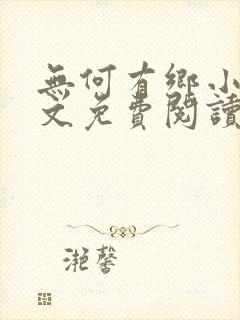 無何有鄉小
文免費閱讀
滟馨